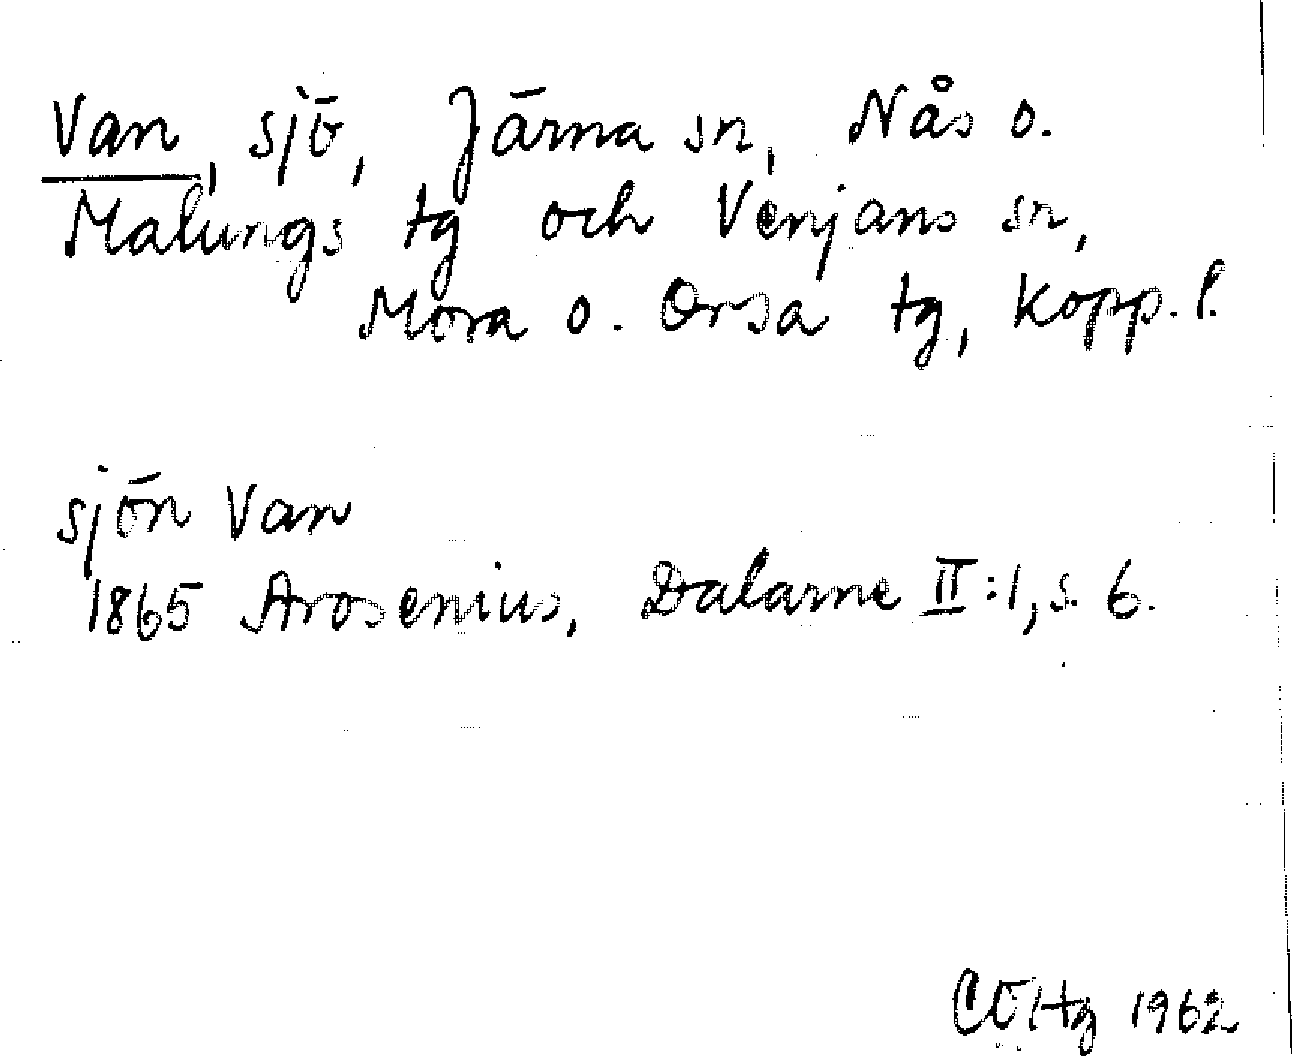 Van, sjö, Järna sn, Nås o.
Malungs tg och Venjans sn,
Mora o. Orsa tg, Kopp. l.
sjön Van
1865 Arosenius, Dalarne II:1, s. 6.
1962